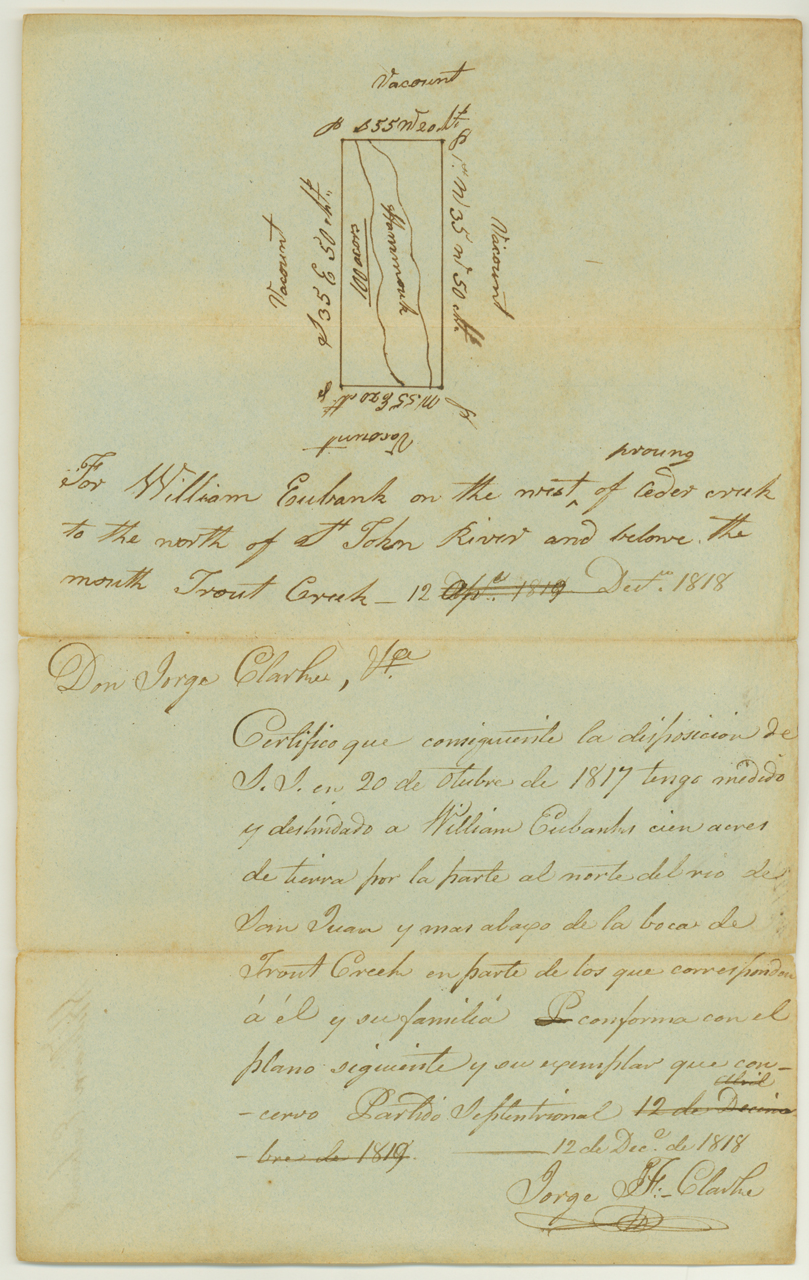 Vacount
P S 55 W 20 cht P
Vacount
S 35 E 50 cht
100 acors
Hammock
1st N 35 W 50 cht
Vacount
P N 55 E 20 ch P
Vacount
proung
For William Eubank on the west ^ of Ceder creek
to the north of St John River and belowe the
mouth Trout Creek — 12 Apl. 1819 Decr. 1818
Don Jorge Clarke, &a
Certifico que consiguiente la disposicion de
S. S. en 20 de Otubre de 1817 tengo medido
y deslindado a William Eubanks cien acres
de tierra por la parte al norte del rio de
San Juan y mas abaxo de la boca de
Trout Creek en parte de los que correspondan
á él y su familiá P conforma con el
plano siguiente y su exemplar que con-
Abril
-cervo Partido Septentrional 12 de Deciem
-bre de 1819. —— 12 de Dece. de 1818
Jorge J. F. Clarke